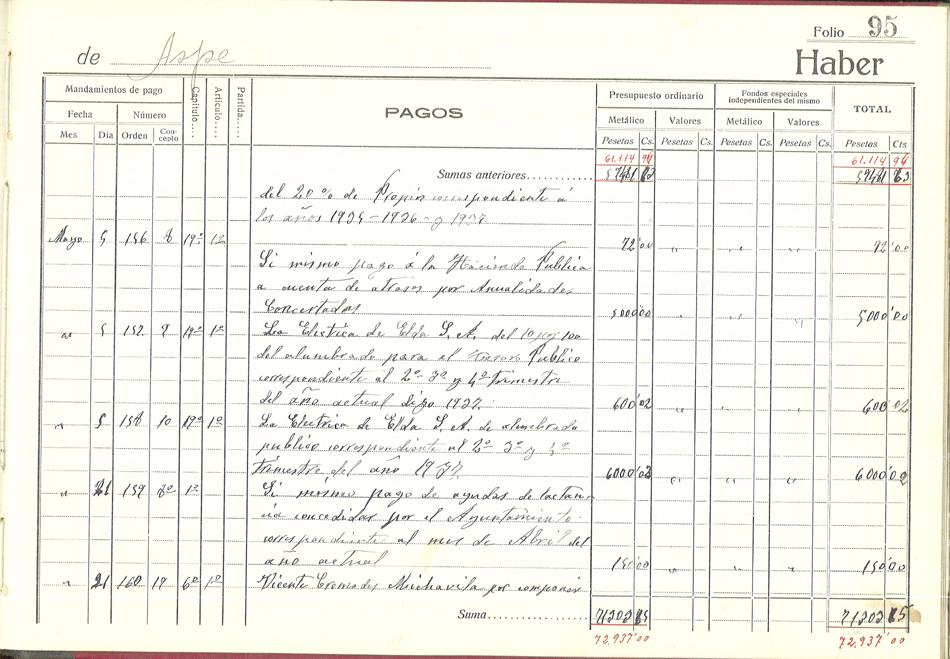 Folio 95
de Aspe
Haber
Mandamientos de pago
Fecha Número
Mes Día Orden Concepto
Capítulo.... Artículo.... Partida....
PAGOS
Presupuesto ordinario
Metálico Valores
Pesetas Cs. Pesetas Cs.
Fondos especiales independientes del mismo
Metálico Valores
Pesetas Cs. Pesetas Cs.
TOTAL
Pesetas Cts.
61.114 94 61.114 94
Sumas anteriores............
del 20 % de Propios correspondiente á
los años 1935-1936-y 1937.
Mayo 5 156 8 19º 1º 72'00 " " " 72'00
Si mismo pago á la Hacienda Publica
a cuenta de atrasos por Anualidades
Concertadas 5000'00 " " " 5000'00
" 5 157 9 19º 1º La Electrica de Elda S. A. del 10 por 100
del alumbrado para el Tesoro Publico
correspondiente al 2º 3º y 4º trimestre
del año actual digo 1937. 600'02 " " " 600'02
" 5 158 10 19º 1º La Electrica de Elda S. A. de alumbrado
publico correspondiente al 2º 3º y 4º
trimestre del año 1937. 6000'02 " " " 6000'02
" 21 159 8º 1º Si mismo pago de ayudas de lactan-
cia concedidas por el Ayuntamiento
correspondiente al mes de Abril del
año actual 150'00 " " " 150'00
" 21 160 17 6º 1º Vicente Cremades Michavila por
Suma...................... 71303 71303
72.937'00 72.937'00